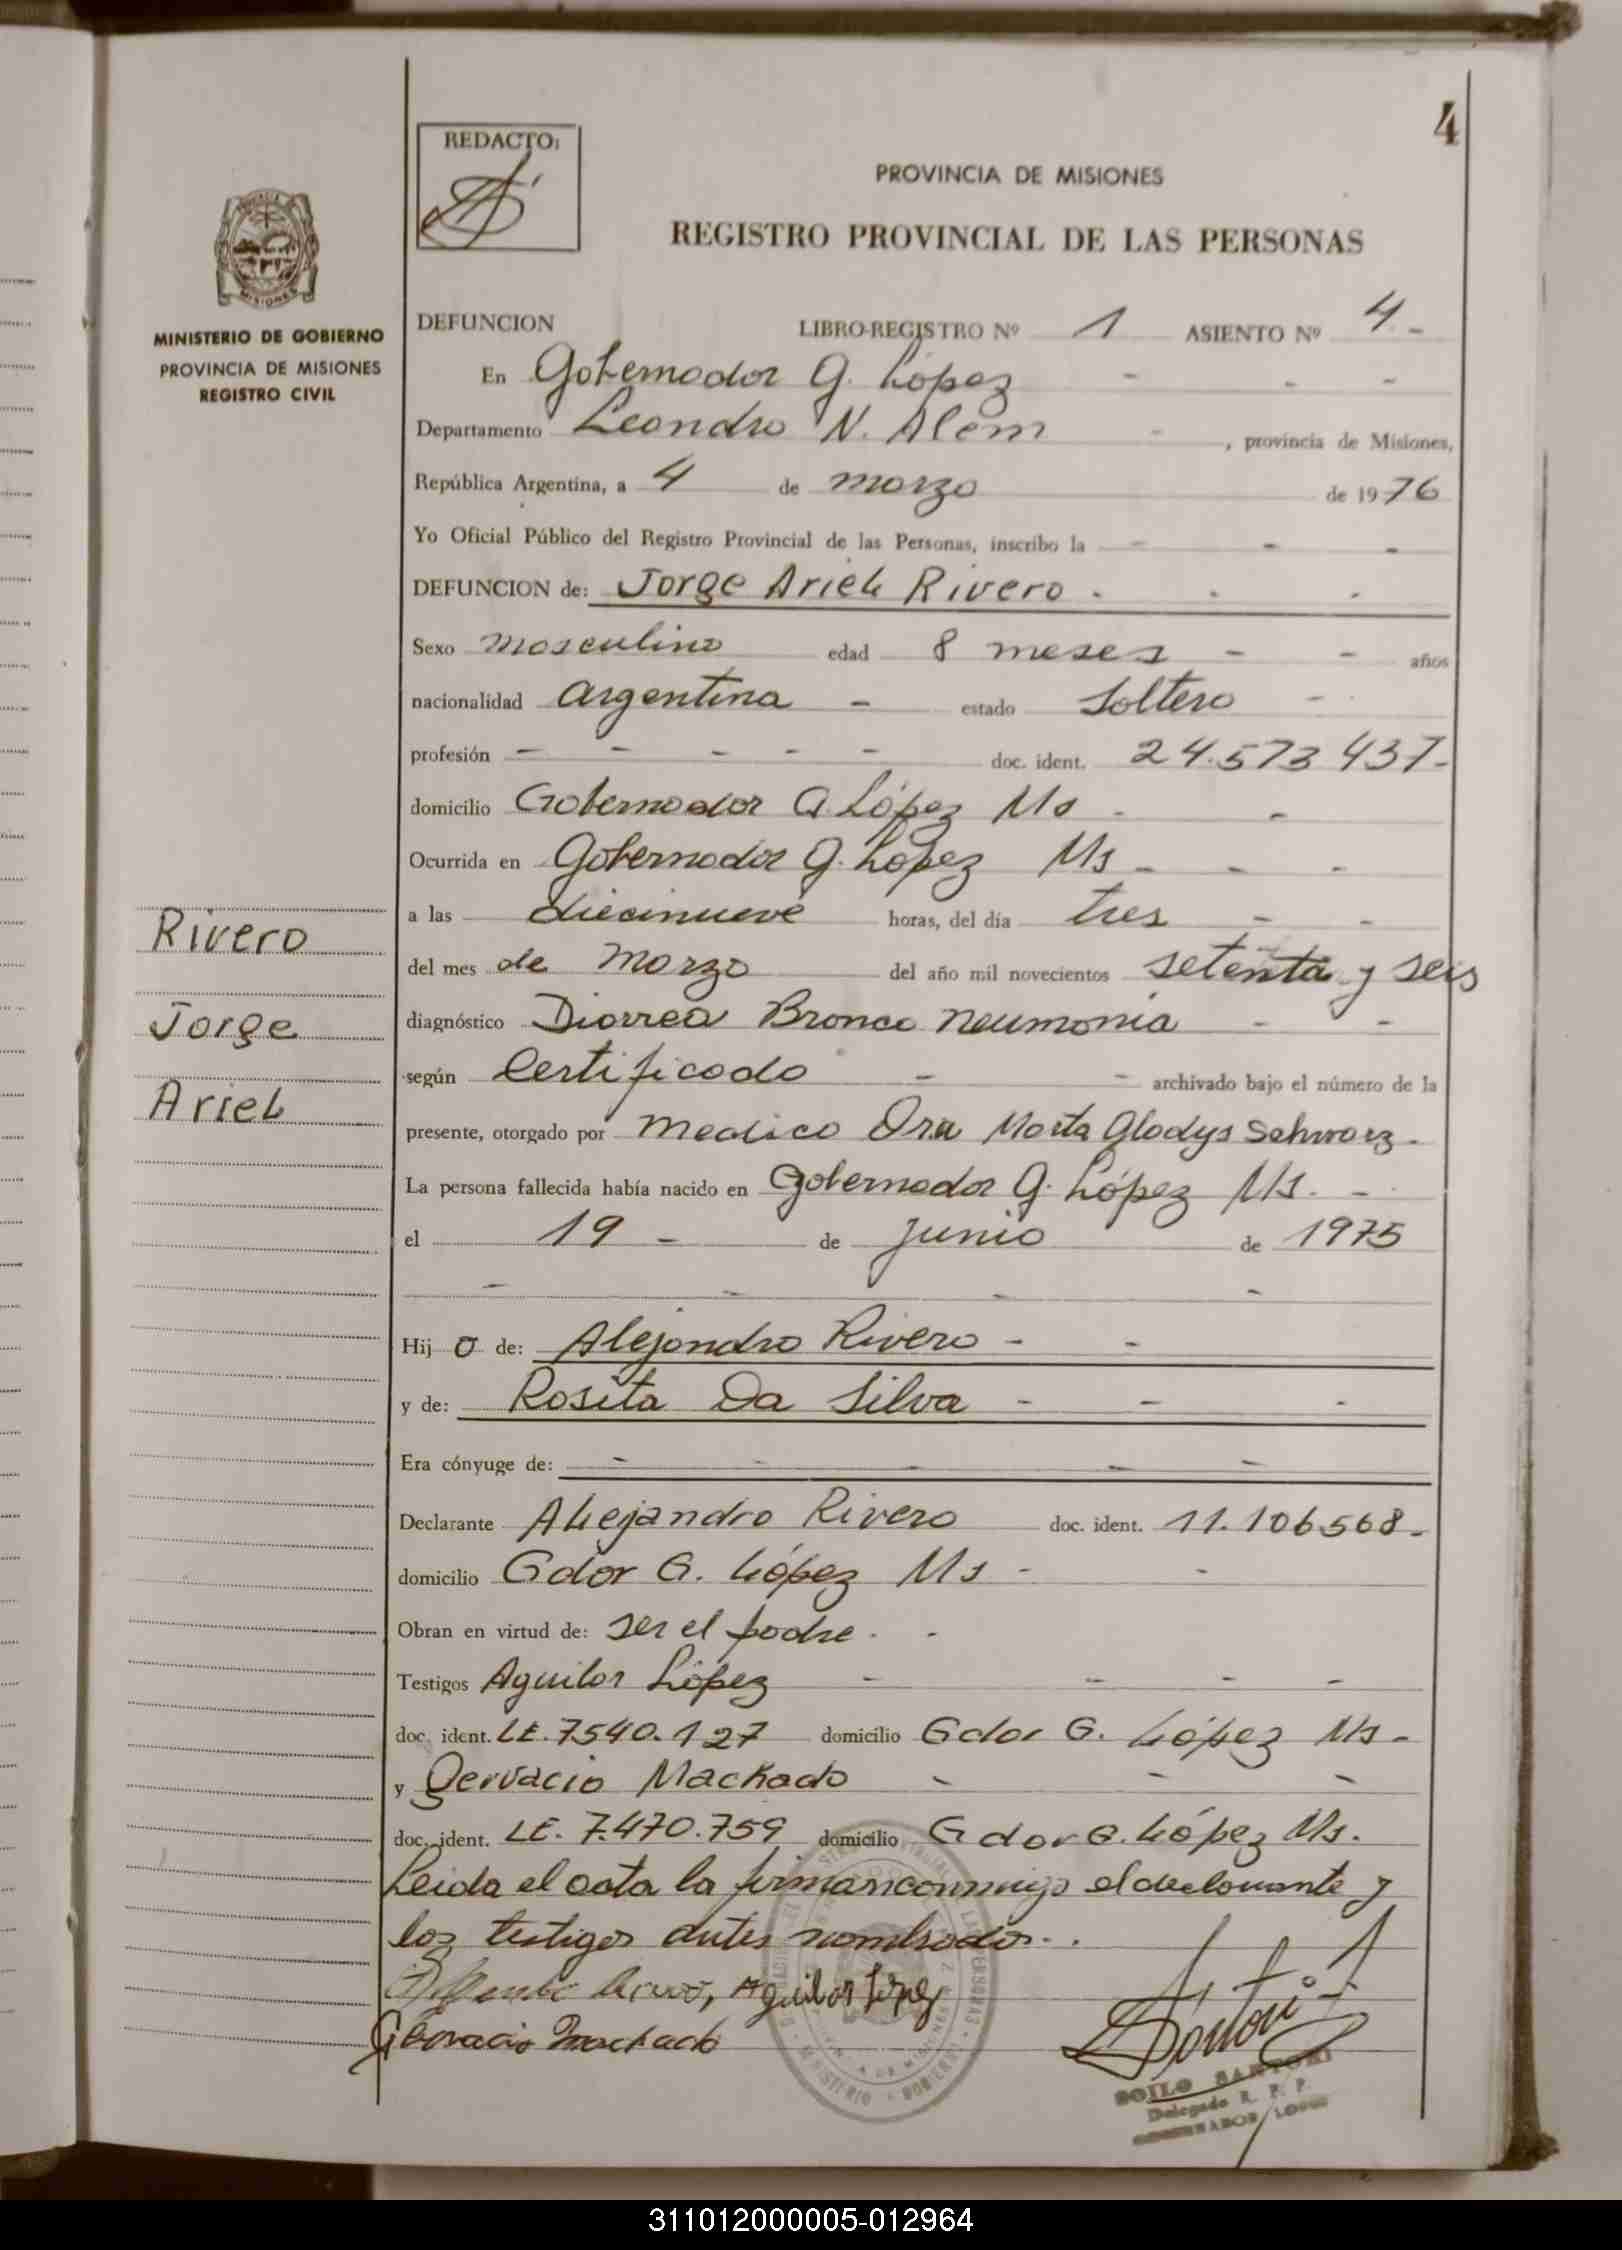 4
REDACTO:
PROVINCIA DE MISIONES
REGISTRO PROVINCIAL DE LAS PERSONAS
MINISTERIO DE GOBIERNO
PROVINCIA DE MISIONES
REGISTRO CIVIL
DEFUNCION LIBRO-REGISTRO Nº 1 ASIENTO Nº 4 -
En Gobernador G. López - - -
Departamento Leandro N. Alem - , provincia de Misiones,
República Argentina, a 4 de marzo de 1976
Yo Oficial Público del Registro Provincial de las Personas, inscribo la - - -
DEFUNCION de: Jorge Ariel Rivero - - -
Sexo masculino edad 8 meses - - años
nacionalidad argentina - estado Soltero -
profesión - - - - - doc. ident. 24.573 437-
domicilio Gobernador G. López Ms - -
Ocurrida en Gobernador G. López Ms - - -
a las diecinueve horas, del día tres - -
del mes de marzo del año mil novecientos setenta y seis
diagnóstico Diorrea Bronco neumonia - -
según Certificado - - archivado bajo el número de la
presente, otorgado por medico Dra Marta Gladys Schwarz -
La persona fallecida había nacido en Gobernador G. López Ms. -
el 19 - de junio de 1975
- - - -
Hij o de: Alejandro Rivero - -
y de: Rosita Da Silva - - -
Era cónyuge de: - - - - -
Declarante Alejandro Rivero doc. ident. 11.106568-
domicilio Gdor G. López Ms - -
Obran en virtud de: ser el padre - -
Testigos Aguilar López - - - -
doc. ident. LE. 7540.127 domicilio Gdor G. López Ms -
y Gervacio Machado - - -
doc. ident. LE. 7.470.759 domicilio Gdor G. López Ms.
Leida el acta la firman conmigo el declarante y
los testigos antes nombrados. .
Aguilar López
Gervacio Machado
Rivero
Jorge
Ariel
ZOILO SARTORI
Delegado R. P. P.
GOBERNADOR LOPEZ
311012000005-012964